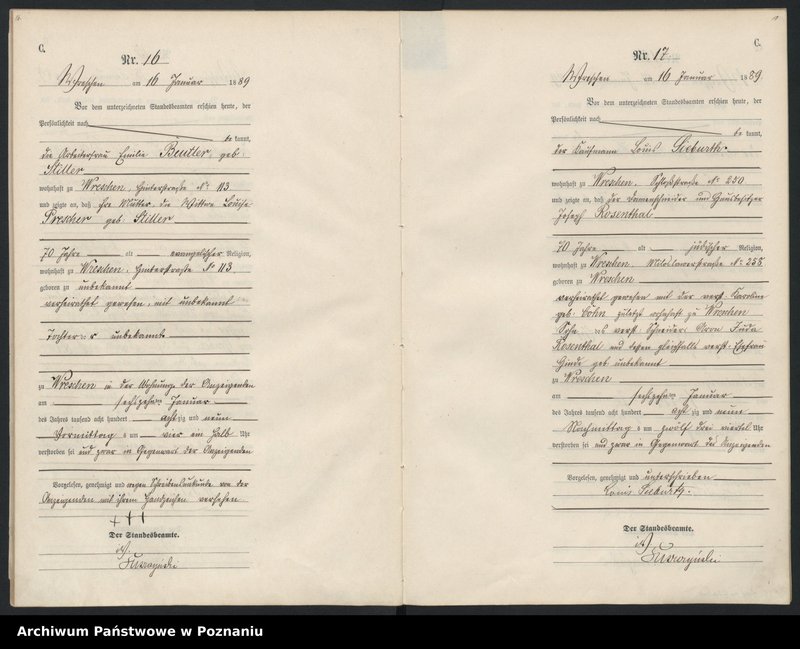 C.
Nr. 16
Wreschen am 16 Januar 1889
Vor dem unterzeichneten Standesbeamten erschien heute, der
Persönlichkeit nach
be kannt,
die Arbeiterfrau Emilie Beutler, geb.
Stiller
wohnhaft zu Wreschen, Hinterstraße No 113
und zeigte an, daß ihre Mutter, die Wittwe Louise
Prescher geb. Stiller
70 Jahre alt evangelischer Religion,
wohnhaft zu Wreschen, Hinterstraße No 113
geboren zu unbekannt
verheirathet gewesen, mit unbekannt
Tochter unbekannte
zu Wreschen in der Wohnung der Anzeigenden
am sechszehnten Januar
des Jahres tausend acht hundert achtzig und neun
Vormittag um vier ein halb Uhr
verstorben sei und zwar in Gegenwart der Anzeigenden
Vorgelesen, genehmigt und wegen Schreibensunkunde von der
Anzeigenden mit ihrem Handzeichen versehen.
+++
Der Standesbeamte.
C.
Nr. 17
Wreschen am 16 Januar 1889
Vor dem unterzeichneten Standesbeamten erschien heute, der
Persönlichkeit nach
be kannt,
der Kaufmann Louis
wohnhaft zu Wreschen, Schloßstraße No 250
und zeigte an, daß der Damenschneider und Hausbesitzer
Joseph Rosenthal
70 Jahre alt jüdischer Religion,
wohnhaft zu Wreschen, Miloslawerstraße No 258
geboren zu Wreschen
verheirathet gewesen mit der verst. Karoline
geb. Cohn zuletzt wohnhaft zu Wreschen
Sohn des verst. Schneider Aron
Rosenthal und dessen gleichfalls verst. Ehefrau
Hinde geb. unbekannt
zu Wreschen
am sechszehnten Januar
des Jahres tausend acht hundert achtzig und neun
Nachmittag um zwölf drei viertel Uhr
verstorben sei und zwar in Gegenwart des Anzeigenden
Vorgelesen, genehmigt und unterschrieben
Louis
Der Standesbeamte.
Archiwum Państwowe w Poznaniu